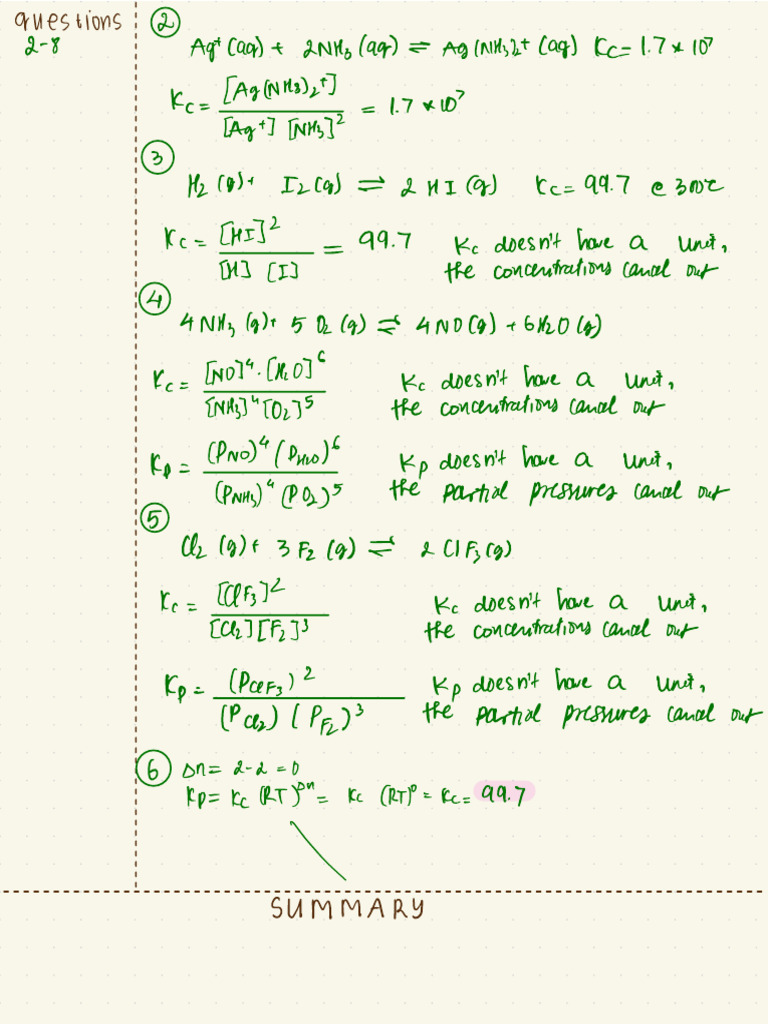 questions
2-8
②
Ag⁺ (aq) + 2NH₃ (aq) ⇌ Ag (NH₃)₂+ (aq) Kc = 1.7 × 10⁷
Kc = [Ag(NH₃)₂⁺] / [Ag⁺] [NH₃]² = 1.7 × 10⁷
③
H₂ (g) + I₂ (g) ⇌ 2 HI (g) Kc = 99.7 @ 300°C
Kc = [HI]² / [H] [I] = 99.7 Kc doesn't have a unit,
the concentrations cancel out
④
4 NH₃ (g) + 5 O₂ (g) ⇌ 4 NO (g) + 6 H₂O (g)
Kc = [NO]⁴ · [H₂O]⁶ / [NH₃]⁴ [O₂]⁵ Kc doesn't have a unit,
the concentrations cancel out
Kp = (PNO)⁴ (PH₂O)⁶ / (PNH₃)⁴ (PO₂)⁵ Kp doesn't have a unit,
the partial pressures cancel out
⑤
Cl₂ (g) + 3 F₂ (g) ⇌ 2 ClF₃ (g)
Kc = [ClF₃]² / [Cl₂] [F₂]³ Kc doesn't have a unit,
the concentrations cancel out
Kp = (PClF₃)² / (PCl₂) (PF₂)³ Kp doesn't have a unit,
the partial pressures cancel out
⑥ Δn = 2-2 = 0
Kp = Kc (RT)^Δn = Kc (RT)⁰ = Kc = 99.7
SUMMARY